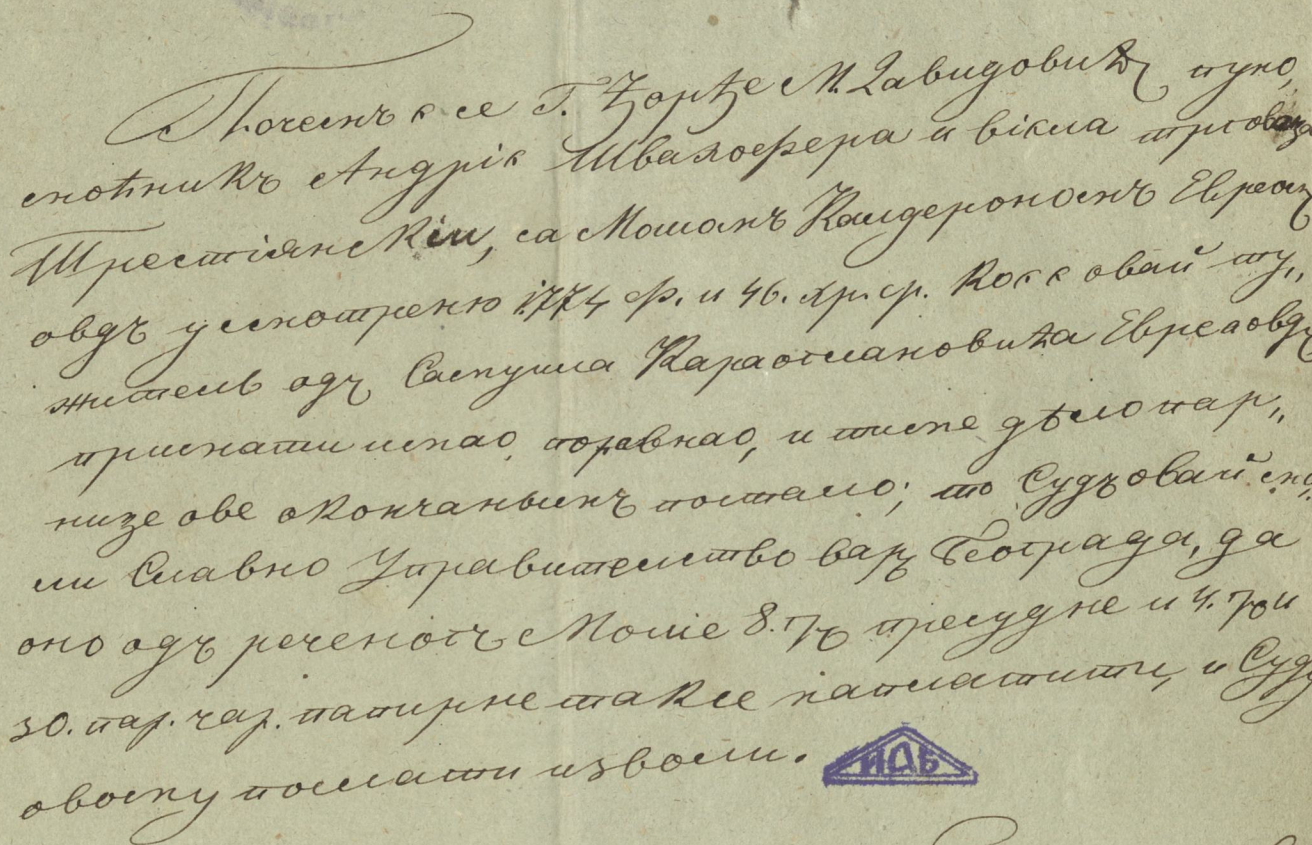 Почемъ є се Г. Ђорђе М. Давидовић пуно,
моћникъ Андріє Швалофера и вікла трговаца
Трестіянскіи, са Мошомъ Калдерономъ Евреомъ
овдѣ усмотреню 1774 ф. и 46. кр. ср. кое є овай ту„
житель одъ Самуила Караоглановића Евреа овдѣ
примати имао, поравнао, и тиме дѣло пар„
нице ове окончанымъ постало; то Судъ овай мо,
ли Славно Управителство вар. Београда, да
оно одъ реченогъ Моше 8. пресудне и 4. и
30. пар. чар. папирне таксе наплатити, и Суду
овому послати изволи.
ИАБ